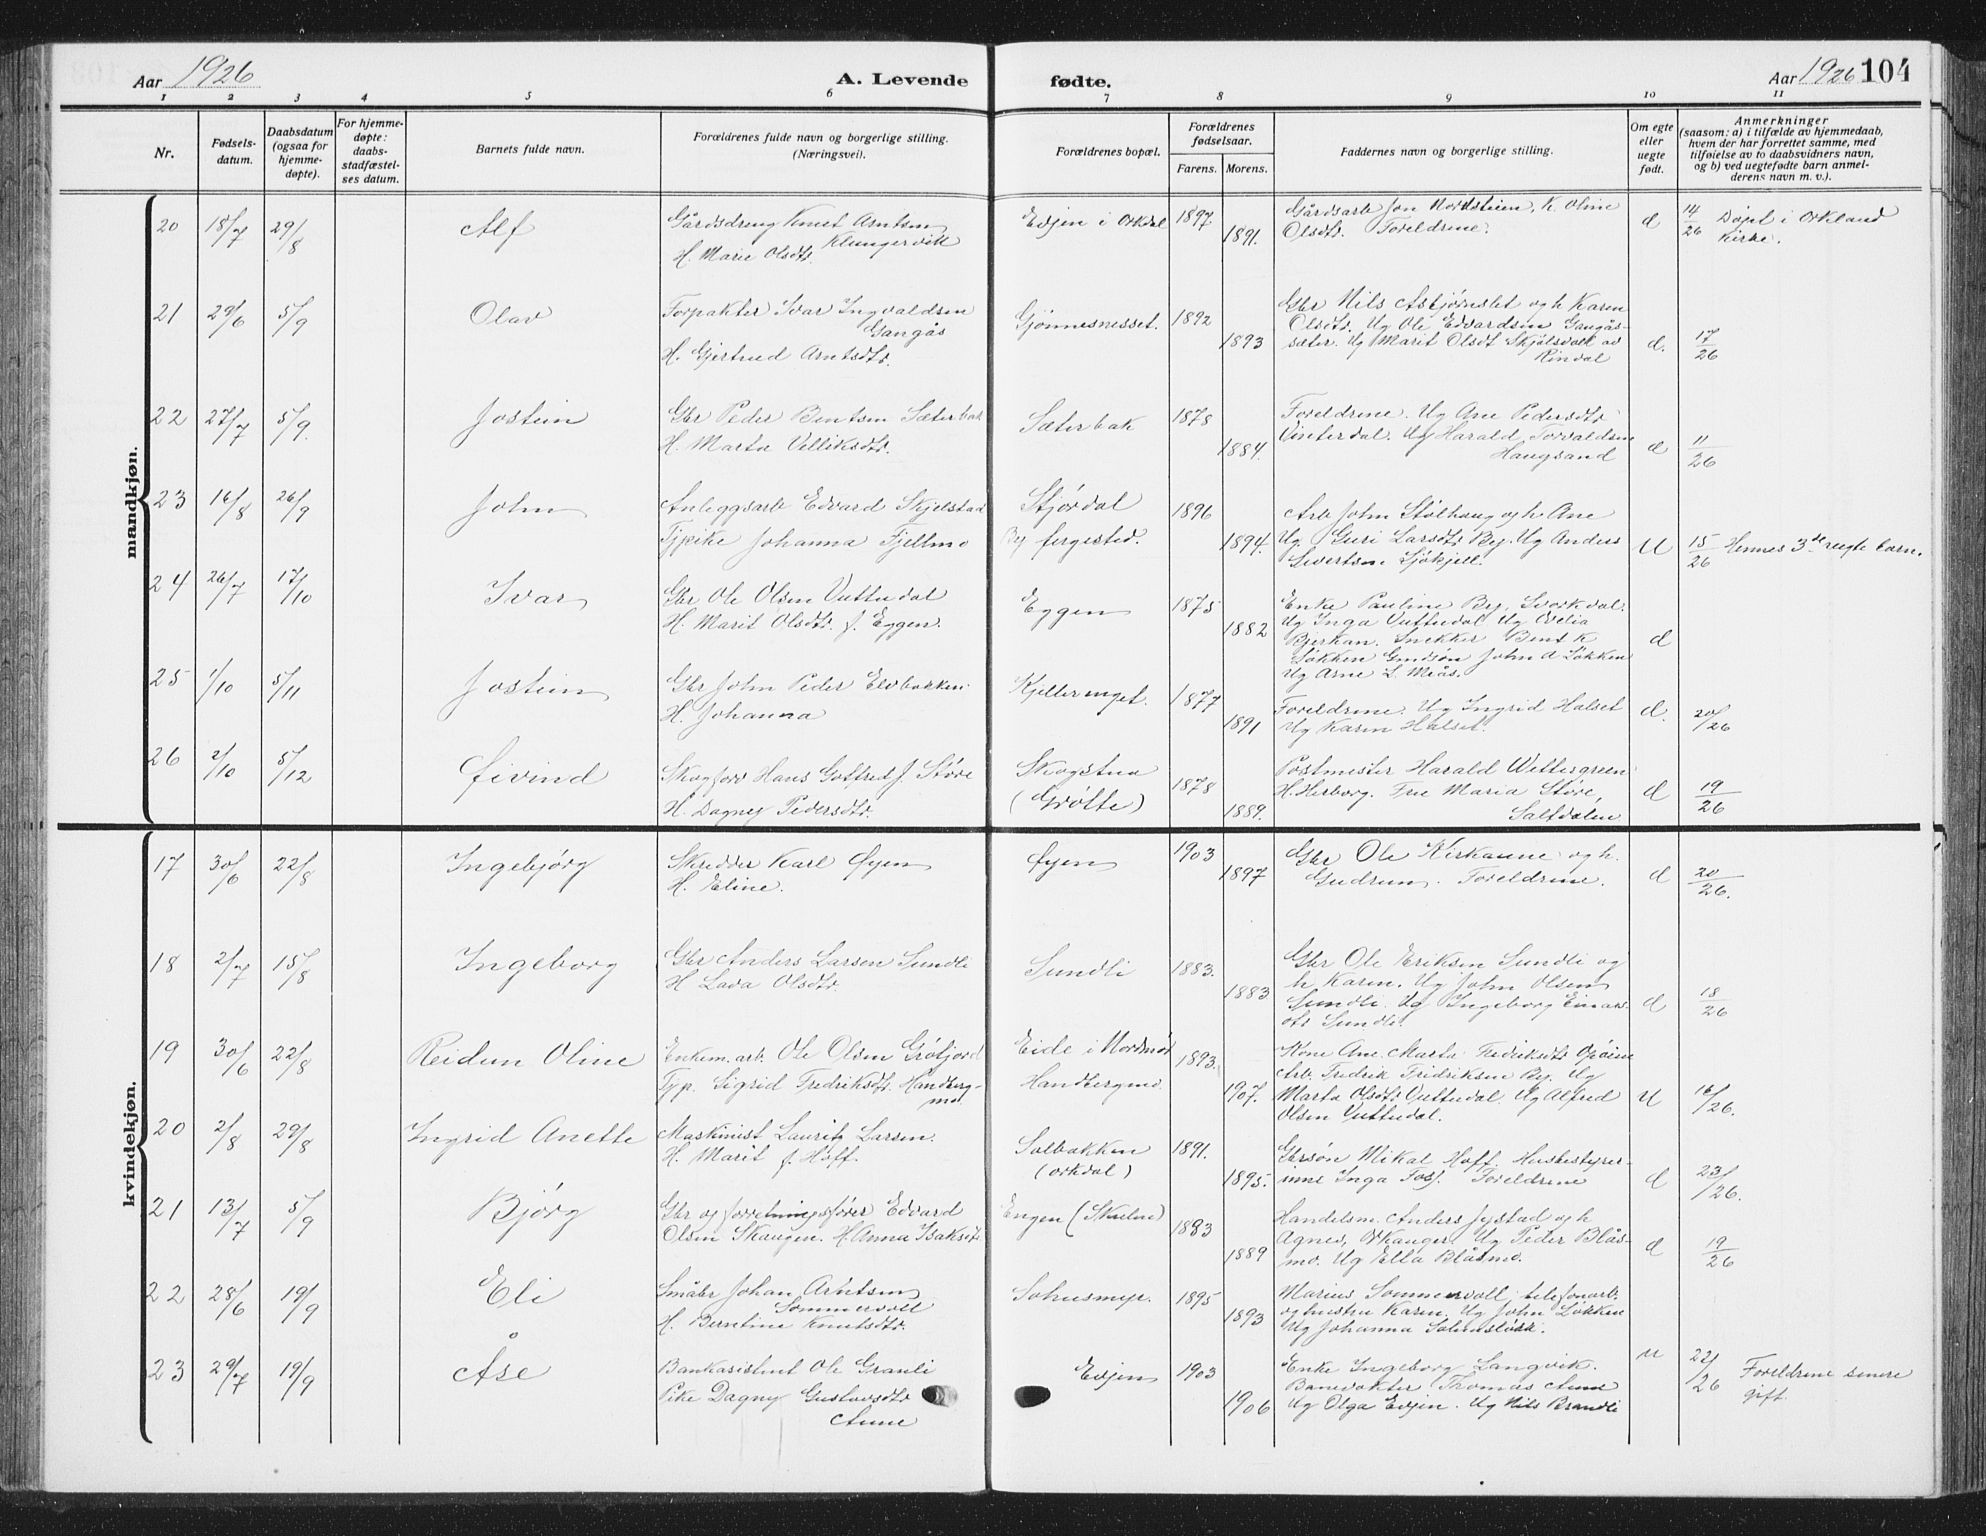 Aar 1926
A. Levende
fødte.
Aar 1926 104
1 2 3 4 5 6 7 8 9 10 11
Nr.
Fødsels-
datum.
Daabsdatum
(ogsaa for
hjemme-
døpte).
For hjemme-
døpte:
daabs-
stadfæstel-
ses datum.
Barnets fulde navn.
Forældrenes fulde navn og borgerlige stilling.
(Næringsvei).
Forældrenes bopæl.
Forældrenes
fødselsaar.
Farens. Morens.
Faddernes navn og borgerlige stilling.
Om egte
eller
uegte
født.
Anmerkninger
(saasom: a) i tilfælde av hjemmedaab,
hvem der har forrettet samme, med
tilføielse av to daabsvidners navn,
og b) ved uegtefødte barn anmel-
derens navn m. v.).
mandkjøn.
20 18/7 29/8 Alf
Gårdsdreng Knut Arntsen
Klungervik
H. Marie Olsdtr.
Evjen i Orkdal 1897 1891.
Gårdsarb Jon Nordstein, K. Oline
Olsdtr. Foreldrene.
d 14/26 Døpt i Orkland
Kirke.
21 29/6 5/9 Olav
Forpakter Ivar Ingvaldsen
Gangås
H. Gjertrud Arntsdtr.
Gjønnesnesset. 1892 1893
Gbr Nils Asbjørnslet og h Karen
Olsdtr. Ug Ole Edvardsen Gangås-
sæter. Ug Marit Olsdt Skjølsvold av
Rindal
d. 17/26
22 27/7 5/9. Jostein
Gbr Peder Bentsen Sæterbak
H. Marta Velliksdtr.
Sæterbak 1878 1884.
Foreldrene. Ug Ane Pedersdtr
Vinterdal. Ug Harald Torvaldsen
Haugsand
d 11/26
23 16/8 26/9 John
Anleggsarb Edvard Skjelstad
Tjpike Johanna Fjellmo
Stjørdal
By fergested.
1896 1894.
Arb John Stølhaug og h. Ane
Ug. Guri Larsdtr By. Ug Anders
Sivertsen Sjøkjell.
U 15/26 Hennes 3de uegte barn.
24 26/7 17/10 Ivar
Gbr Ole Olsen Vuttudal
H. Marit Olsdtr. f. Eggen.
Eggen 1875 1882
Enke Pauline By, Svorkdal.
Ug Inga Vuttudal Ug Ovelia
Bjerkan. Snekker Bent K
Løkken Gmdsøn John A Løkken
Ug Arne L. Miås.
d
25 1/10 5/11 Jostein
Gbr John Peder Elvbakken
H. Johanna
Kjelleringet. 1877 1891
Foreldrene. Ug Ingrid Halset
Ug Karen Halset.
d. 20/26
26 2/10 5/12 Øivind
Skogforv Hans Gotfred J. Støre
H. Dagny Pedersdtr.
Skogstua
(Grøtte)
1878 1889.
Postmester Harald Wettergreen
H. Herborg. Frue Maria Støre,
Saltdalen
d 19/26
kvindekjøn.
17 30/6 22/8 Ingebjørg
Skredder Karl Øyen
H. Eline.
Øyen 1903 1897
Gbr Ole Kirkaune og h.
Gudrun. Foreldrene.
d 20/26.
18 2/7 15/8 Ingeborg
Gbr Anders Larsen Sundli
H Lava Olsdtr.
Sundli 1883. 1883
Gbr Ole Eriksen Sundli og
h Karen. Ug John Olsen
Sundli. Ug Ingeborg Einars-
dtr Sundli.
d 18/26
19 30/6 22/8 Reidun Oline
Enkem. arb. Ole Olsen Grøtjord
Typ. Sigrid Fredriksdtr. Handberg-
mo.
Eide i Nordmør
Handbergmo.
1893. 1907.
Kone Ane Marta Fredriksdtr
Arb. Fredrik Fridriksen By. Ug
Marta Olsdtr Vuttudal. Ug Alfred
Olsen Vuttudal.
U 16/26.
20 2/8 29/8 Ingrid Anette
Maskinist Laurits Larsen.
H. Marit f. Hoff.
Solbakken
(Orkdal)
1891. 1895.
Gbrsøn Mikal Hoff. Husbestyrer-
inne Inga Foss. Foreldrene
d 23/26.
21 13/7 5/9 Bjørg
Gbr og forretningsfører Edvard
Olsen Skaugen. H. Anna Isaksdtr
Engen (Skulmo) 1883 1889
Handelsm. Anders Jystad og h
Agnes, Orkanger. Ug Peder Blås-
mo. Ug Ella Blåsmo.
d 19/26
22 28/6 19/9 Eli
Småbr Johan Arntsen
Sommervoll
H. Berntine Knutsdtr.
Solusmyr. 1895 1893
Marius Sommervoll telefonarb.
og hustru Karen. Ug John Løkken
Ug Johanna
23 29/7 19/9 Åse
Bankasistent Ole Granli
Pike Dagny Gustavsdtr
Aune
Evjen 1903 1906
Enke Ingeborg Langvik.
Banevokter Thomas Aune
Ug Olga Evjen. Ug Nils Brandli
u 22/26 Foreldrene senere
gift.